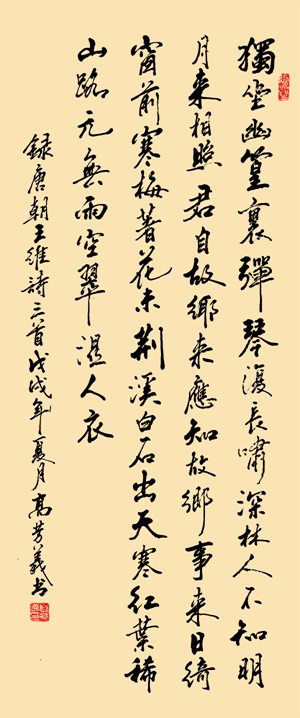 獨坐幽篁裏彈琴復長嘯深林人不知明
月来相照君自故鄉来應知故鄉事来日綺
窗前寒梅著花未荆溪白石出天寒紅葉稀
山路元無雨空翠濕人衣
録唐朝王維詩三首戊戌年夏月高芳義书